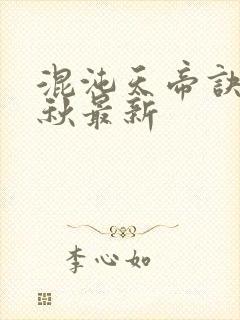 混沌天帝訣
秋最新
李心如